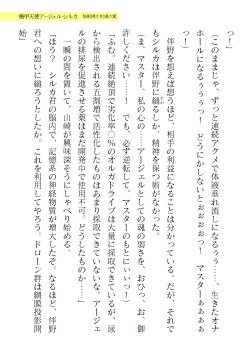 機甲天使アージェル・シルカ
っ！」
（このままじゃ、ずっと連続アクメで体液垂れ流しになるぅぅ……、生きたオナ
ホールになるぅぅぅっ！　どうにかしないとぉぉぉぉっ！　マスターぁぁぁぁ
っ！）
　伴野を想えば想うほど、相手の利益になることは分かっている。だが、それで
もシルカは伴野に縋るしか、精神を保つ術がなかった。
（ま、マスター、私の心の……アージェルとしての魂の弱さを、おひっ、お、御
許しください……っ！　でも、必ず逆転して、マスターのもとにぃいっ！）
「ふむ。連続絶頂で劣化率○％のオルガドライブは大量に採取できているが、尿
から検出される五割増で活性化したものはあまり採取できていないな。アージェ
ルの排尿を促進させる薬はまだ開発中で使用不可。どうしたものか……」
　一瞬の間を置いて、山崎が興味深そうにしゃべり始める。
「ほう？　シルカ君の脳内で、記憶系の神経物質が増大したぞ。なるほど、伴野
君への想いに縋るつもりか。これを利用してやろう。ドローン群は網膜投影開
始」